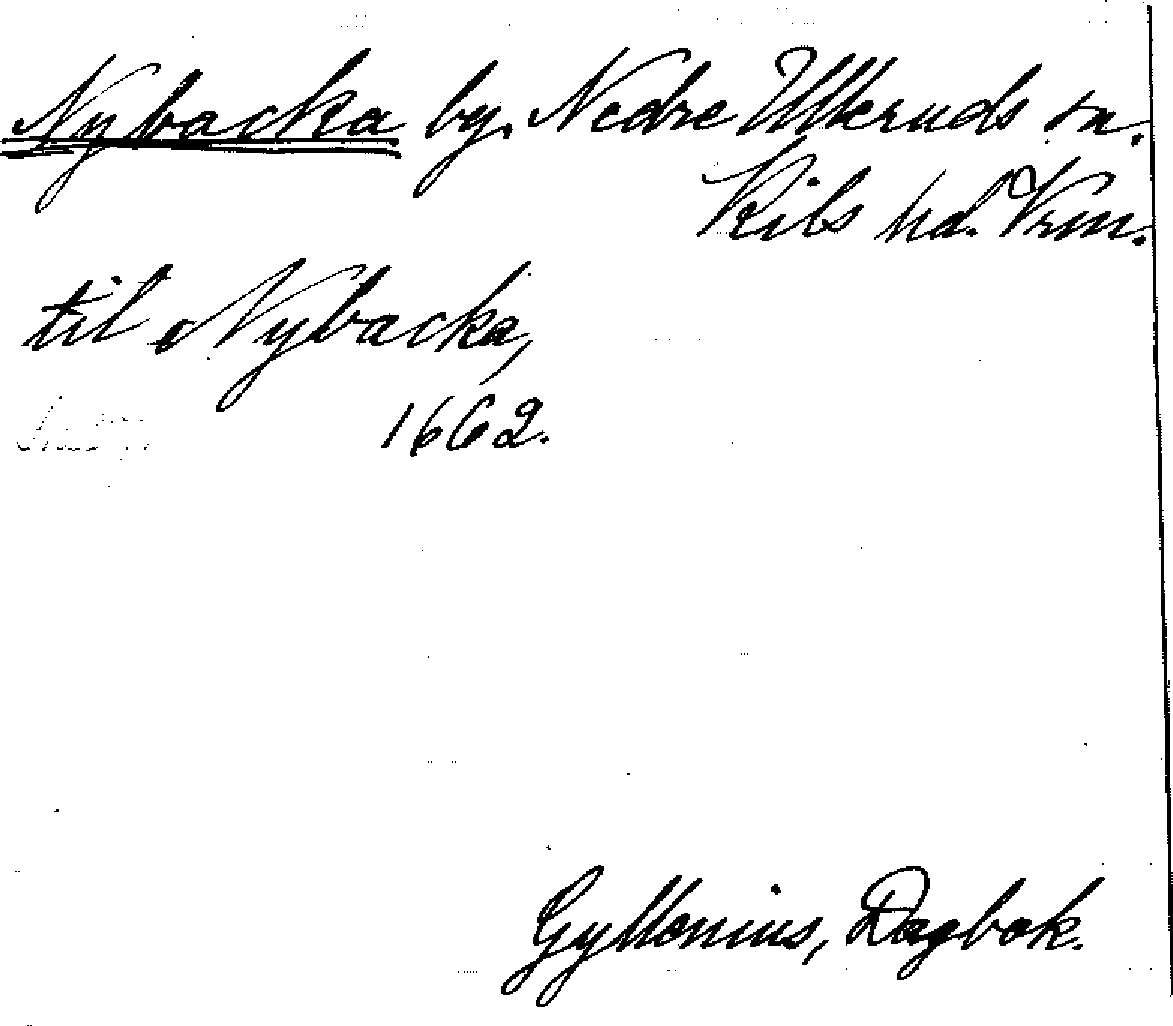 Nybacka by. Nedre Ulleruds sn.
Kils hd. Vrm.
til Nybacka,
1662.
Gyllonius, Dagbok.